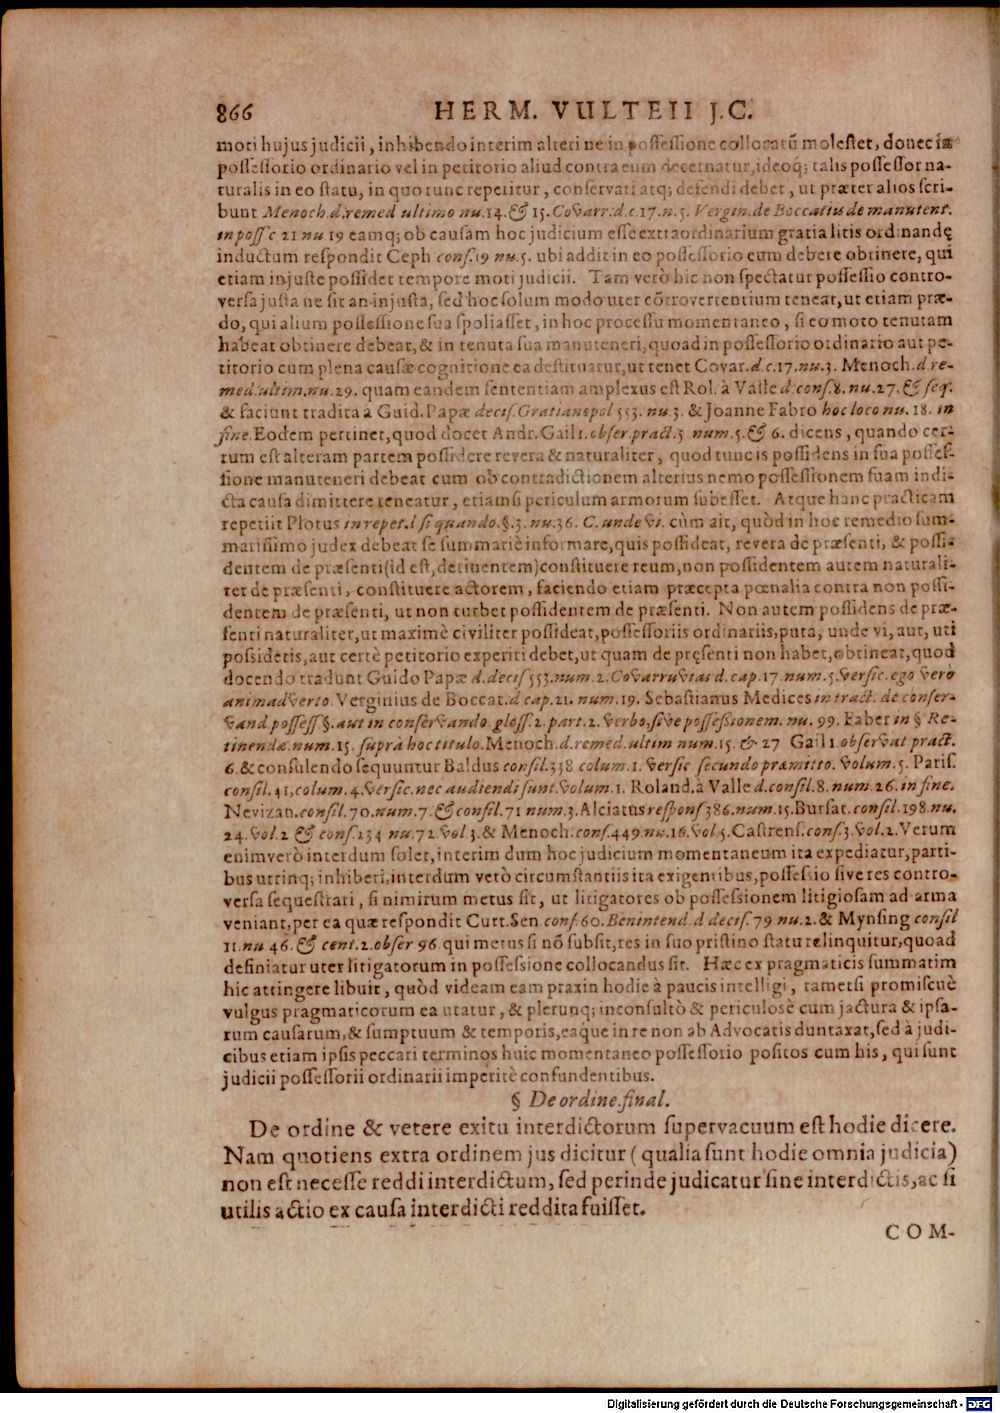 866 HERM. VULTEII J.C.
moti hujus judicii, inhibendo interim alteri ne in possessione collocatũ molestet, donec in
possessorio ordinario vel in petitorio aliud contra eum decernatur, ideoq; talis possessor na-
turalis in eo statu, in quo tunc repetitur, conservari atq; defendi debet, ut præter alios scri-
bunt Menoch. d. remed ultimo nu. 14. & 15. Covarr. d. c. 17. n. 5. Vergin. de Boccatiis de manutent.
in poss c 21 nu 19 eamq; ob causam hoc judicium esse extraordinarium gratia litis ordinandę
inductum respondit Ceph cons. 19 nu. 5. ubi addit in eo possessorio eum debere obtinere, qui
etiam injuste possidet tempore moti judicii. Tam verò hic non spectatur possessio contro-
versa justa ne sit an injusta, sed hoc solum modo uter cõtrovertentium teneat, ut etiam præ-
do, qui alium possessione sua spoliasset, in hoc processu momentaneo, si eo moto tenutam
habeat obtinere debeat, & in tenuta sua manuteneri, quoad in possessorio ordinario aut pe-
titorio cum plena causæ cognitione ea destituatur, ut tenet Covar. d. c. 17. nu. 3. Menoch. d. re-
med. ultim. nu. 29. quam eandem sententiam amplexus est Rol. à Valle d. cons. 8. nu. 27. & seq.
& faciunt tradita à Guid. Papæ decis. Gratianopol 553. nu. 3. & Joanne Fabro hoc loco nu. 18. in
fine. Eodem pertinet, quod docet Andr. Gail 1. obser. pract. 5 num. 5. & 6. dicens, quando cer-
tum est alteram partem possidere revera & naturaliter, quod tunc is possidens in sua posses-
sione manuteneri debeat cum ob contradictionem alterius nemo possessionem suam indi-
cta causa dimittere teneatur, etiamsi periculum armorum subesset. Atque hanc practicam
repetiit Plotus in repet. l si quando. §. 3. nu. 36. C. unde vi. cùm ait, quòd in hoc remedio sum-
marissimo judex debeat se summariè informare, quis possideat, revera de præsenti, & possi-
dentem de præsenti (id est, detinentem) constituere reum, non possidentem autem naturali-
ter de præsenti, constituere actorem, faciendo etiam præcepta pœnalia contra non possi-
dentem de præsenti, ut non turbet possidentem de præsenti. Non autem possidens de præ-
senti naturaliter, ut maximè civiliter possideat, possessoriis ordinariis, puta, unde vi, aut, uti
possidetis, aut certè petitorio experiri debet, ut quam de pręsenti non habet, obtineat, quod
docendo tradunt Guido Papæ d. decis 553. num. 2. Covarruvias d. cap. 17. num. 5. versic. ego verò
animadverto. Verginius de Boccat. d cap. 21. num. 19. Sebastianus Medices in tract. de conser-
vand. possess §. aut in conservando. gloss. 2. part. 2. verbo, sive possessionem. nu. 99. Faber in § Re-
tinendæ. num. 15. suprà hoc titulo. Menoch. d. remed. ultim num. 15. & 27 Gail 1 observat pract.
6. & consulendo sequuntur Baldus consil. 338 colum. 1. versic secundo præmitto. volum. 5. Paris.
consil. 41, colum. 4. versic. nec audiendi sunt. volum. 1. Roland. à Valle d. consil. 8. num 26. in fine.
Nevizan. consil. 70. num. 7. & consil. 71 num. 3. Alciatus respons 386. num. 15. Bursat. consil. 198. nu.
24. vol. 2 & cons. 234 nu. 72. vol 3. & Menoch. cons. 449. nu. 16. vol. 5. Castrens. cons. 3. vol. 2. Verum
enimverò interdum solet, interim dum hoc judicium momentaneum ita expediatur, parti-
bus utrinq; inhiberi, interdum verò circumstantiis ita exigentibus, possessio sive res contro-
versa sequestrari, si nimirum metus sit, ut litigatores ob possessionem litigiosam ad arma
veniant, per ea quæ respondit Curt. Sen cons. 60. Benintend. d decis. 79 nu. 2. & Mynsing consil
11. nu 46. & cent. 2. obser 96. qui metus si nõ subsit, res in suo pristino statu relinquitur, quoad
definiatur uter litigatorum in possessione collocandus sit. Hæc ex pragmaticis summatim
hic attingere libuit, quòd videam eam praxin hodie à paucis intelligi, tametsi promiscuè
vulgus pragmaticorum ea utatur, & plerunq; inconsultò & periculosè cum jactura & ipsa-
rum causarum, & sumptuum & temporis, eaque in re non ab Advocatis duntaxat, sed à judi-
cibus etiam ipsis peccari terminos huic momentaneo possessorio positos cum his, qui sunt
judicii possessorii ordinarii imperitè confundentibus.
§ De ordine. final.
De ordine & vetere exitu interdictorum supervacuum est hodie dicere.
Nam quotiens extra ordinem jus dicitur (qualia sunt hodie omnia judicia)
non est necesse reddi interdictum, sed perinde judicatur sine interdictis, ac si
utilis actio ex causa interdicti reddita fuisset.
COM-
Digitalisierung gefördert durch die Deutsche Forschungsgemeinschaft - DFG